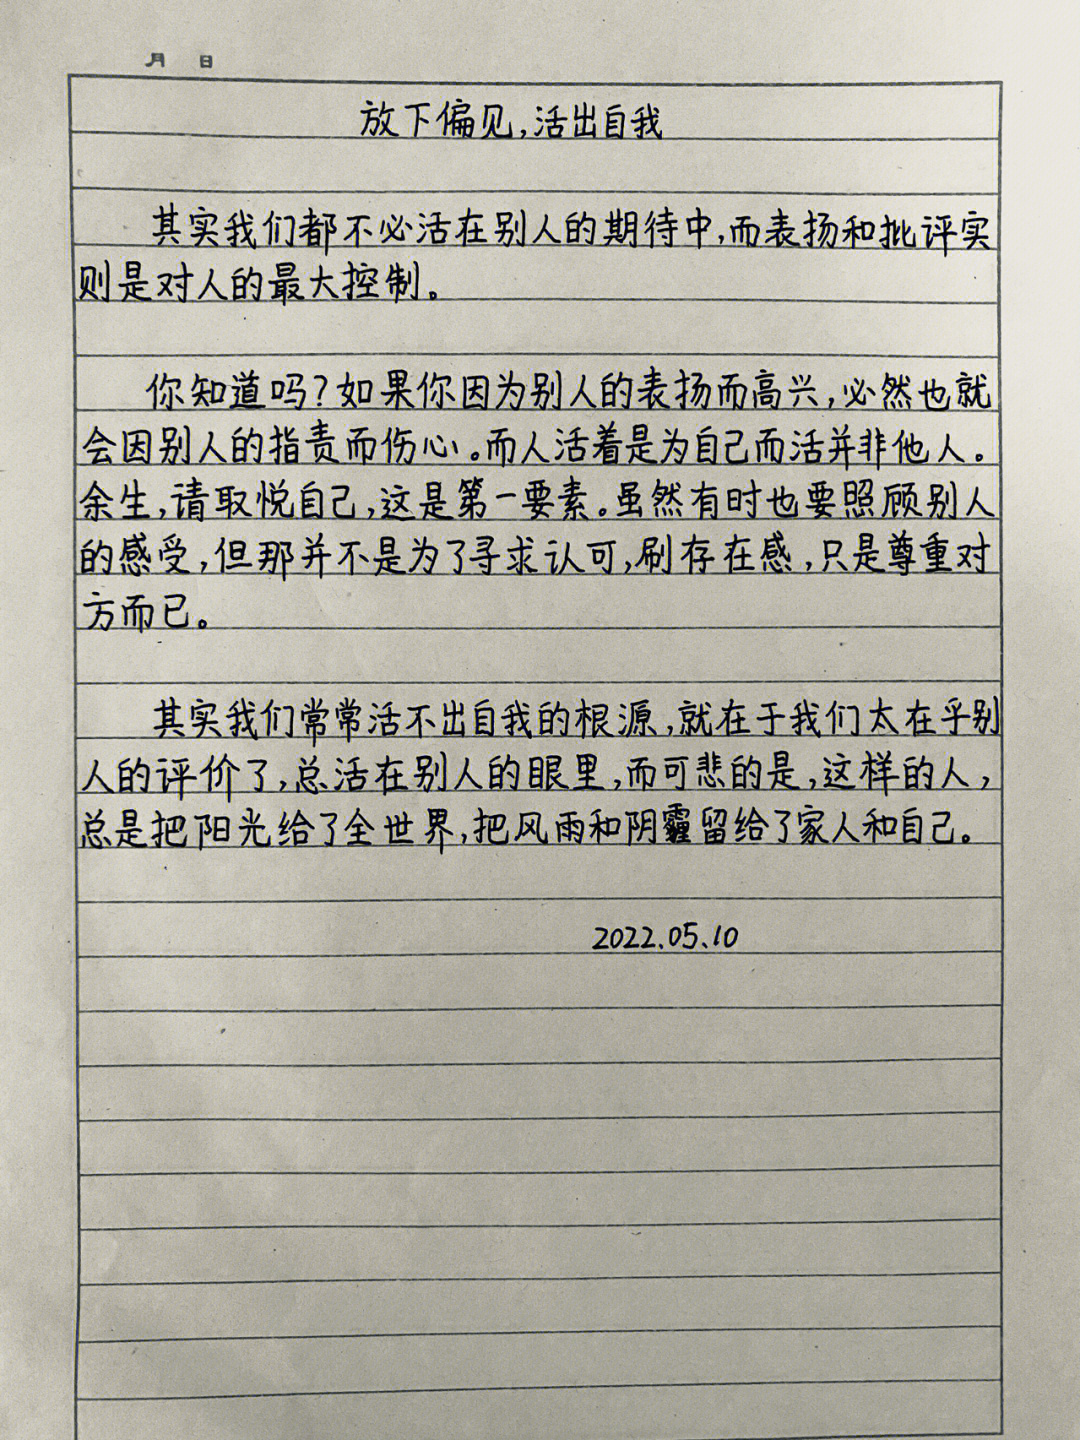 月 日
放下偏见,活出自我
其实我们都不必活在别人的期待中,而表扬和批评实
则是对人的最大控制。
你知道吗?如果你因为别人的表扬而高兴,必然也就
会因别人的指责而伤心。而人活着是为自己而活并非他人。
余生,请取悦自己,这是第一要素。虽然有时也要照顾别人
的感受,但那并不是为了寻求认可,刷存在感,只是尊重对
方而已。
其实我们常常活不出自我的根源,就在于我们太在乎别
人的评价了,总活在别人的眼里,而可悲的是,这样的人,
总是把阳光给了全世界,把风雨和阴霾留给了家人和自己。
2022.05.10